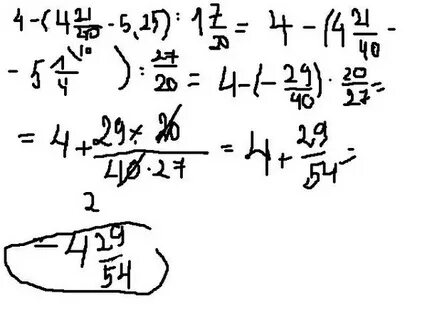 4-(4 21/40 - 5,25) : 1 7/20 = 4 - (4 21/40 -
- 5 1\10/4 ) : 27/20 = 4-(- 29/40) · 20/27 =
= 4 + 29 × 20/40 · 27 = 4 + 29/54 =
2
= 4 29/54